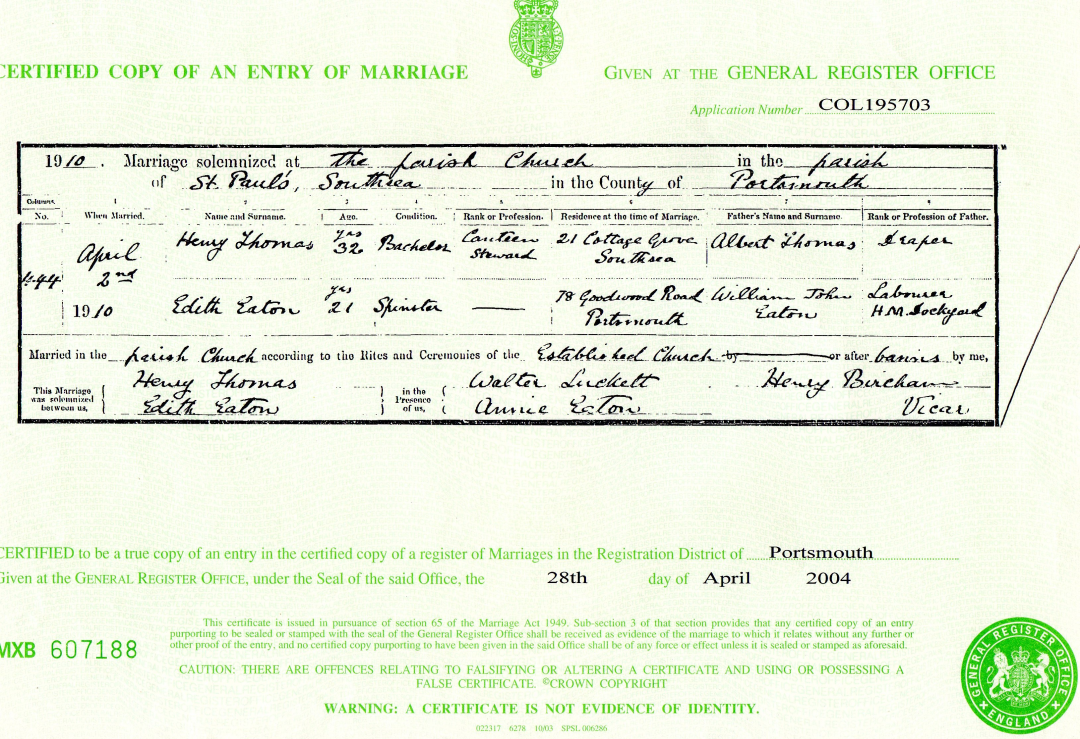 CERTIFIED COPY OF AN ENTRY OF MARRIAGE
GIVEN AT THE GENERAL REGISTER OFFICE
Application Number COL195703
1910. Marriage solemnized at the parish Church in the parish
of St. Paul's, Southsea in the County of Portsmouth
Columns. 1 2 3 4 5 6 7 8
No. When Married. Name and Surname. Age. Condition. Rank or Profession. Residence at the time of Marriage. Father's Name and Surname. Rank or Profession of Father.
April 2nd 1910
Henry Thomas yrs 32 Bachelor Canteen Steward 21 Cottage Grove Southsea Albert Thomas Draper
Edith Eaton yrs 21 Spinster — 78 Goodwood Road Portsmouth William John Eaton Labourer H.M. Dockyard
Married in the parish Church according to the Rites and Ceremonies of the Established Church by or after banns by me,
This Marriage was solemnized between us,
Henry Thomas
Edith Eaton
in the Presence of us,
Walter Luckett
Annie Eaton
Henry Bircham
Vicar
CERTIFIED to be a true copy of an entry in the certified copy of a register of Marriages in the Registration District of Portsmouth
Given at the GENERAL REGISTER OFFICE, under the Seal of the said Office, the 28th day of April 2004
This certificate is issued in pursuance of section 65 of the Marriage Act 1949. Sub-section 3 of that section provides that any certified copy of an entry
purporting to be sealed or stamped with the seal of the General Register Office shall be received as evidence of the marriage to which it relates without any further or
other proof of the entry, and no certified copy purporting to have been given in the said Office shall be of any force or effect unless it is sealed or stamped as aforesaid.
MXB 607188
CAUTION: THERE ARE OFFENCES RELATING TO FALSIFYING OR ALTERING A CERTIFICATE AND USING OR POSSESSING A
FALSE CERTIFICATE. ©CROWN COPYRIGHT
WARNING: A CERTIFICATE IS NOT EVIDENCE OF IDENTITY.
022317 6278 10/03 SPSL 006286
GENERAL REGISTER OFFICE
ENGLAND